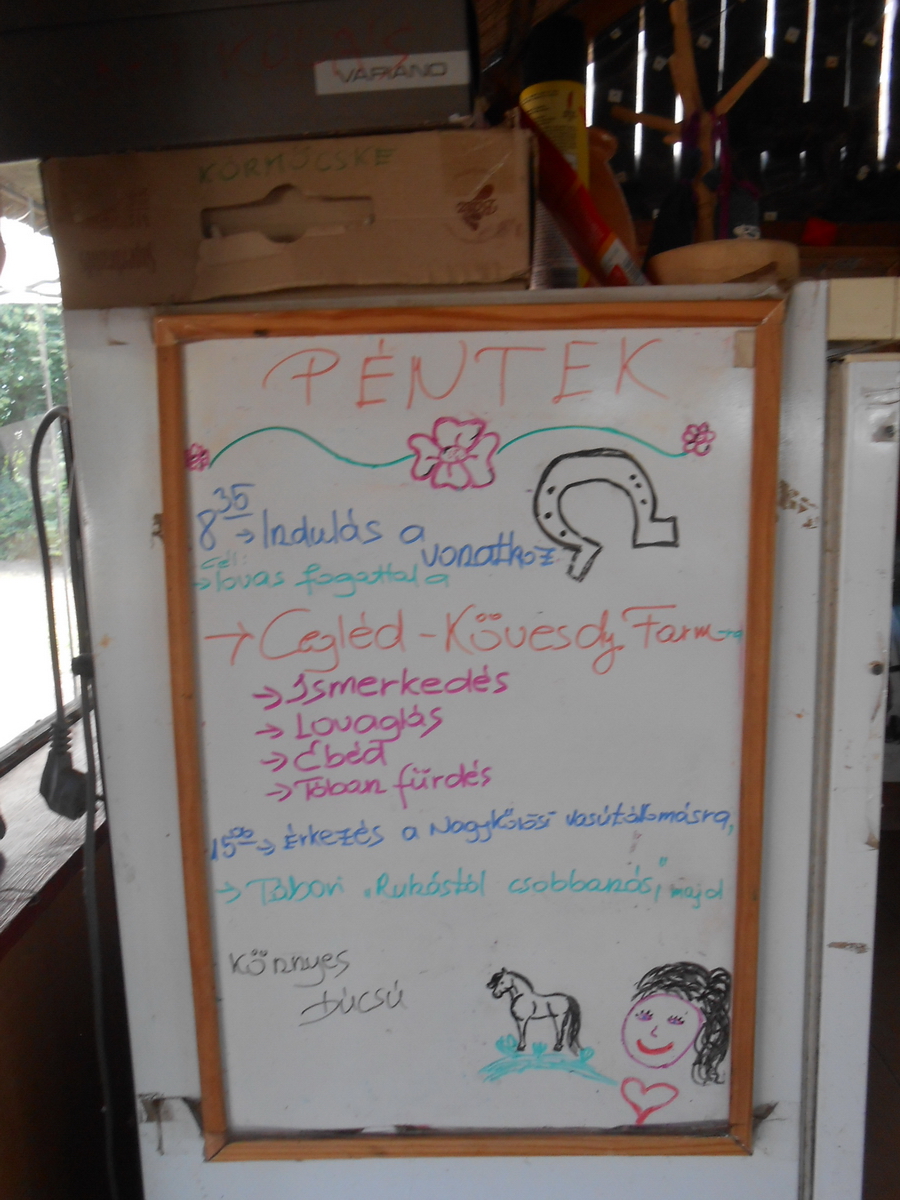 VARIANO
KÖRMÖCSKE
PÉNTEK
8³⁵ → Indulás a
vonatkoz
cél:
→ lovas fogattal a
→ Cegléd - Kövesdy Farm-ra
→ Ismerkedés
→ Lovaglás
→ Ebéd
→ Tóban fürdés
15⁰⁰ → Érkezés a Nagykőrösi vasútállomásra,
→ Tábori "Ruhástól csobbanás", majd
Könnyes
búcsú